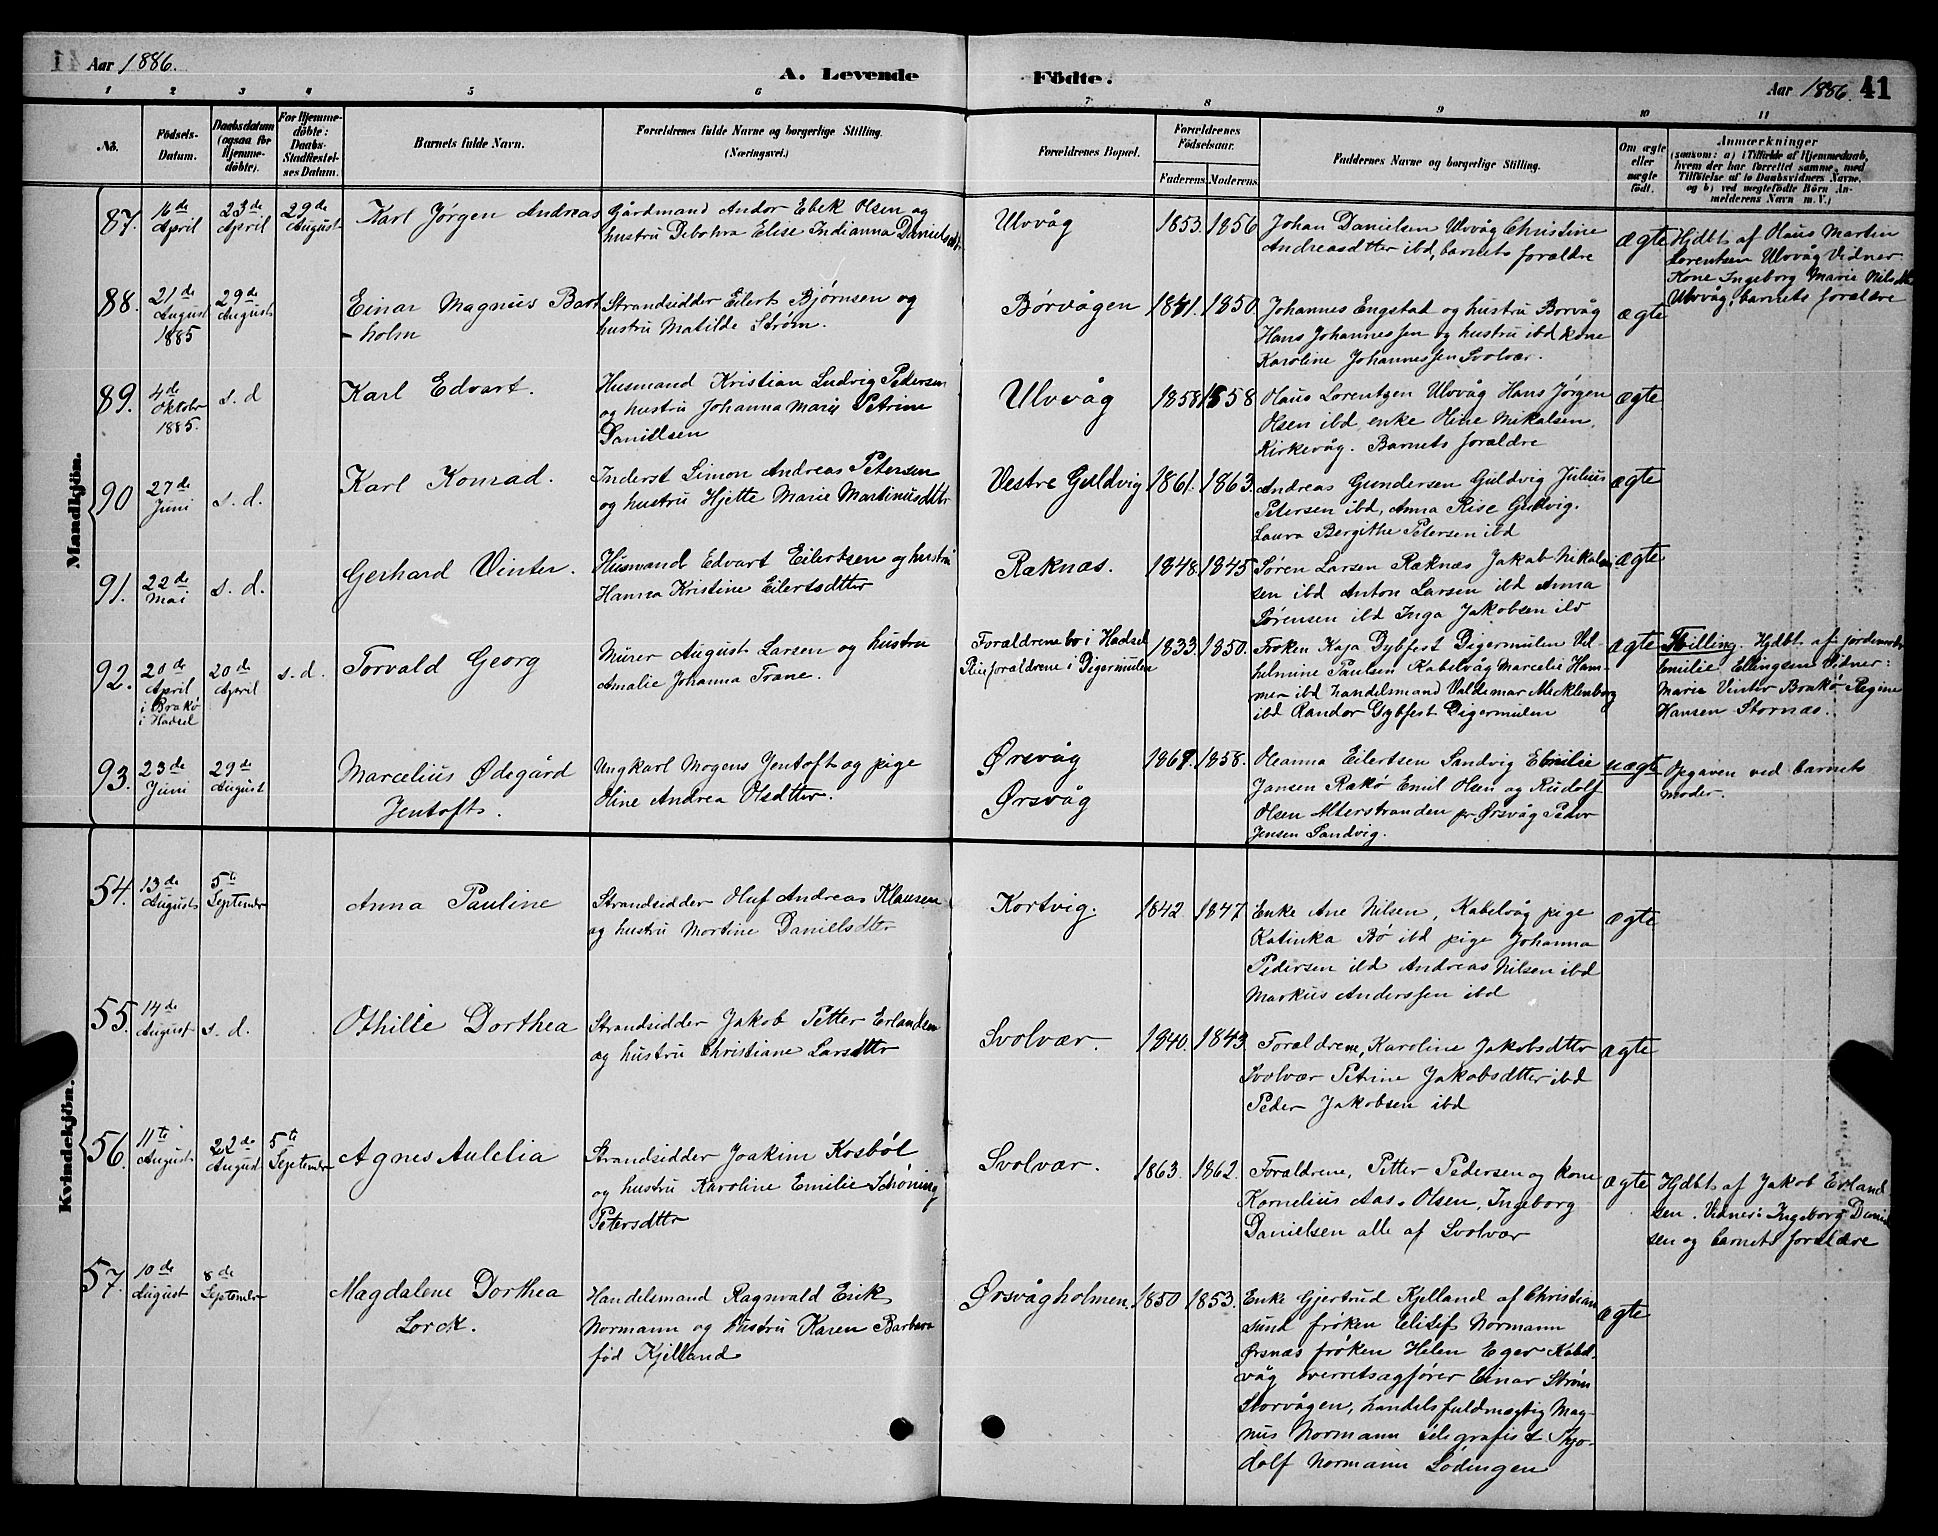 Aar 1886.
A. Levende Födte.
Aar 1886. 41
1 2 3 4 5 6 7 8 9 10 11
No.
Födsels-
Datum.
Daabsdatum
(ogsaa for
Hjemme-
döbte).
For Hjemme-
döbte:
Daabs-
Stadfæstel-
ses Datum.
Barnets fulde Navn.
Forældrenes fulde Navne og borgerlige Stilling.
(Næringsvei.)
Forældrenes Bopæl.
Forældrenes
Födselsaar.
Faderens. Moderens.
Faddernes Navne og borgerlige Stilling.
Om ægte
eller
uægte
födt.
Anmærkninger
(saasom: a) i Tilfælde af Hjemmedaab,
hvem der har forrettet samme, med
Tilföielse af to Daabsvidners Navne,
og b) ved uægtefödte Börn An-
melderens Navn m. V.)
Mandkjön.
87.
16de
April
23de
April
29de
August
Karl Jørgen Andreas
Gårdmand Andor Ebek Olsen og
hustru Debohra Elise Indianna Danielsdtr
Ulvvåg
1853. 1856
Johan Danielsen Ulvvåg Christine
Andreasdtter ibd, barnets forældre
ægte
Hjdbt af Hans Martin
Lorentsen Ulvvåg Vidner
Kone Ingeborg Marie Nilsdtr
Ulvvåg, barnets forældre
88.
21de
August
1885
29de
August
Einar Magnus Bart
-holm
Strandsidder Eilert Bjørnsen og
hustru Matilde Strøm.
Børvågen
1841. 1850.
Johannes Engstad og hustru Borvåg
Hans Johannessen og hustru ibd kone
Karoline Johannessen Svolvær.
ægte
89.
4de
Oktobr
1885.
s. d
Karl Edvart.
Husmand Kristian Ludvig Pedersen
og hustru Johanna Marie Petrine
Daniellsen
Ulvvåg
1858 1858
Hans Lorentzen Ulvvåg Hans Jørgen
Olsen ibd, enke Oline Mikalsen,
Kirkevåg. Barnets forældre
ægte
90
27de
Juni
s. d.
Karl Konrad.
Inderst Simon Andreas Petersen
og hustru Hjette Marie Martinusdttr
Vestre Guldvig
1861. 1863.
Andreas Gundersen Guldvig Julius
Petersen ibd, Anna Rise Guldvig.
Laura Bergithe Petersen ibd
ægte
91.
22de
Mai
s. d.
Gerhard Vinter.
Husmand Edvart Eilertsen og hustru
Hanna Kristine Eilertsdtter
Raknæs.
1848. 1845
Søren Larsen Raknæs Jakob Nikolai
sen ibd Anton Larsen ibd Anna
Sørensen ibd Inga Jakobsen ibd
ægte
92.
20de
April
i Brakø
i Hadsel
20de
April
s. d.
Torvald Georg
Murer August Larsen og hustru
Amalie Johanna Trane.
Forældrene bo i Hadsel
Pleieforældrene i Digermulen
1833. 1850.
Frøken Kaja Dybfest Digermulen Vil-
helmine Paulsen Kabelvåg Marcelie Ham-
mer ibd handelsmand Valdemar Mecklenborg
ibd Randor Dybfest Digermulen
ægte
Tvilling. Hjdbt af jordemodr
Emilie Ellingsen Vidner:
Marie Vinter Brakø Regine
Hansen Stornæs.
93.
23de
Juni
29de
August
Marcelius Ødegård
Jentoft.
Ungkarl Mogens Jentoft og pige
Oline Andrea Olsdtter.
Ørsvåg
Ørsvåg
1861. 1858.
Oleanna Eilertsen Sandvig Emilie
Jansen Rakø Emil Olsen og Rudolf
Olsen Alterstranden pr Ørsvåg Peder
Jensen Sandvig.
uægte
Opgaven ved barnets
moder.
Kvindekjön.
54.
13de
August
5te
September
Anna Pauline
Strandsidder Oluf Andreas Klausen
og hustru Mortine Danielsdtter
Kortvig.
1842 1847
Enke Ane Nilsen, Kabelvåg pige
Katinka Bø ibd pige Johanna
Pedersen ibd Andreas Nilsen ibd
Markus Anderssen ibd
ægte
55.
14de
August
s. d.
Othilie Dorthea
Strandsidder Jakob Petter Erlandsen
og hustru Christiane Larsdtter
Svolvær.
1840. 1843
Forældrene, Karoline Jakobsdtter
Svolvær Petrine Jakobsdtter ibd
Peder Jakobsen ibd
ægte
56.
11te
August
22de
August
5te
September
Agnes Aulelia
Strandsidder Joakim Kosbøl
og hustru Karoline Emilie Schøning
Petersdtter
Svolvær.
1863. 1862.
Forældrene, Petter Pedersen og kone
Kornelius Aas. Olsen, Ingeborg
Danielsen alle af Svolvær
ægte
Hjdbt af Jakob Erland
sen. Vidner: Ingeborg Daniel
sen og barnets forældre
57.
10de
August
8de
September
Magdalene Dorthea
Lorck.
Handelsmand Ragnvald Erik
Normann og hustru Karen Barbara
fød Kjelland
Ørsvågholmen.
1850 1853.
Enke Gjertrud Kjelland af Christian
sund frøken Elisef Normann
Ørsnæs frøken Helen Eger Kabel-
våg overretsagfører Einar Strøm
Storvågen, handelsfuldmægtig Mag-
nus Normann telegrafist Thjo-
dolf Normann Lødingen
ægte